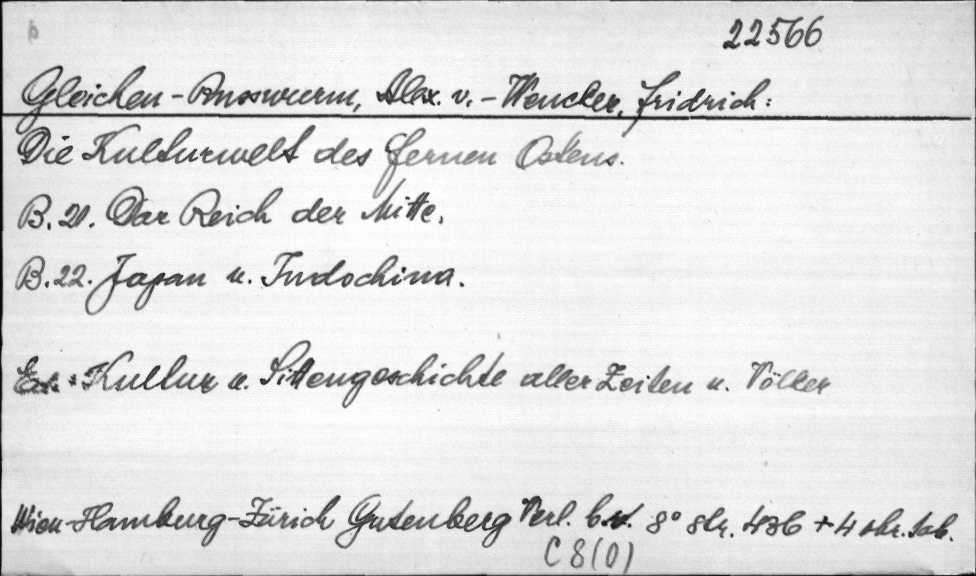 22566
Gleichen-Russwurm, Alex. v. - Wencker, Fridrich:
Die Kulturwelt des fernen Ostens.
B. 21. Das Reich der Mitte.
B. 22. Japan u. Indochina.
Kultur u. Sittengeschichte aller Zeiten u. Völker
Wien-Hamburg-Zürich Gutenberg Verl. 8° str. 436 + 4 chr. tab.
C 8(0)